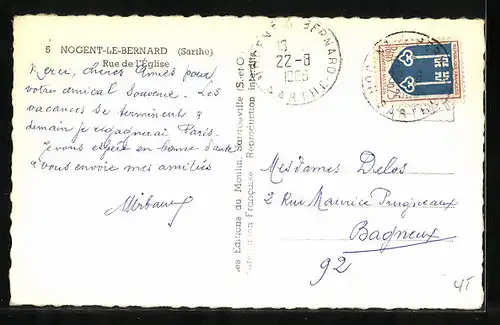 5 NOGENT-LE-BERNARD (Sarthe)
Rue de l'Église
Merci, chères Amies pour
votre amical souvenir. Les
vacances se terminent &
demain je regagnerai Paris.
Je vous espère en bonne santé
& vous envoie mes amitiés
Les Éditions du Moulin, Sartrouville (S.-et-O.)
Fabrication Française Reproduction Interdite
BERNARD
13
22-8
SARTHE
Mesdames Delos
2 Rue Maurice
Bagneux
92
SARTHE